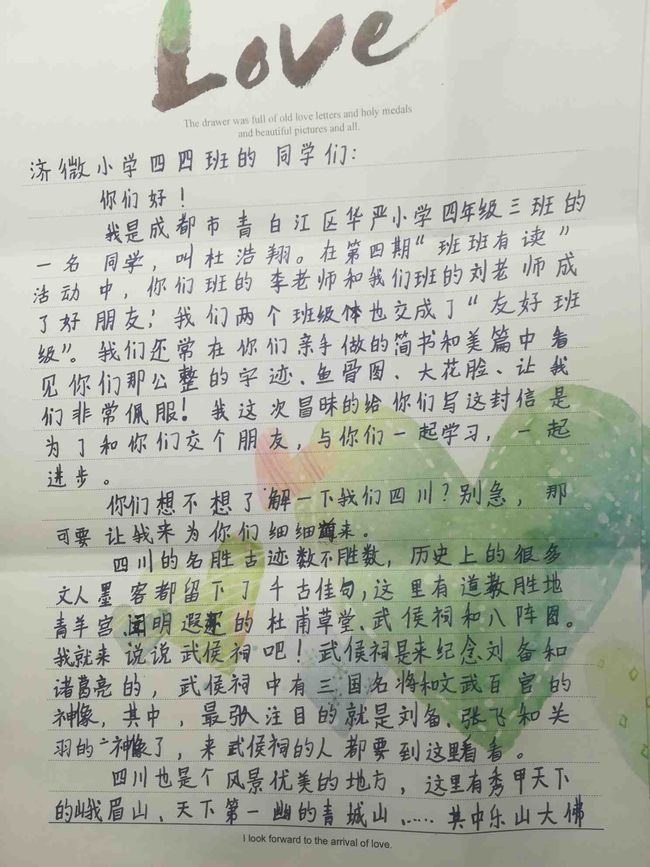 Love
The drawer was full of old love letters and holy medals
and beautiful pictures and all.
济微小学四四班的同学们：
你们好！
我是成都市青白江区华严小学四年级三班的
一名同学，叫杜浩翔。在第四期“班班有读”
活动中，你们班的李老师和我们班的刘老师成
了好朋友；我们两个班级体也交成了“友好班
级”。我们还常在你们亲手做的简书和美篇中看
见你们那公整的字迹、鱼骨图、大花脸、让我
们非常佩服！我这次冒昧的给你们写这封信是
为了和你们交个朋友，与你们一起学习，一起
进步。
你们想不想了解一下我们四川？别急，那
可要让我来为你们细细道来。
四川的名胜古迹数不胜数，历史上的很多
文人墨客都留下了千古佳句，这里有道教胜地
青羊宫、闻明遐迩的杜甫草堂、武侯祠和八阵图。
我就来说说武侯祠吧！武侯祠是来纪念刘备和
诸葛亮的，武侯祠中有三国名将和文武百官的
神像，其中，最引人注目的就是刘备、张飞和关
羽的神像了，来武侯祠的人都要到这里看看。
四川也是个风景优美的地方，这里有秀甲天下
的峨眉山、天下第一幽的青城山、……其中乐山大佛
I look forward to the arrival of love.